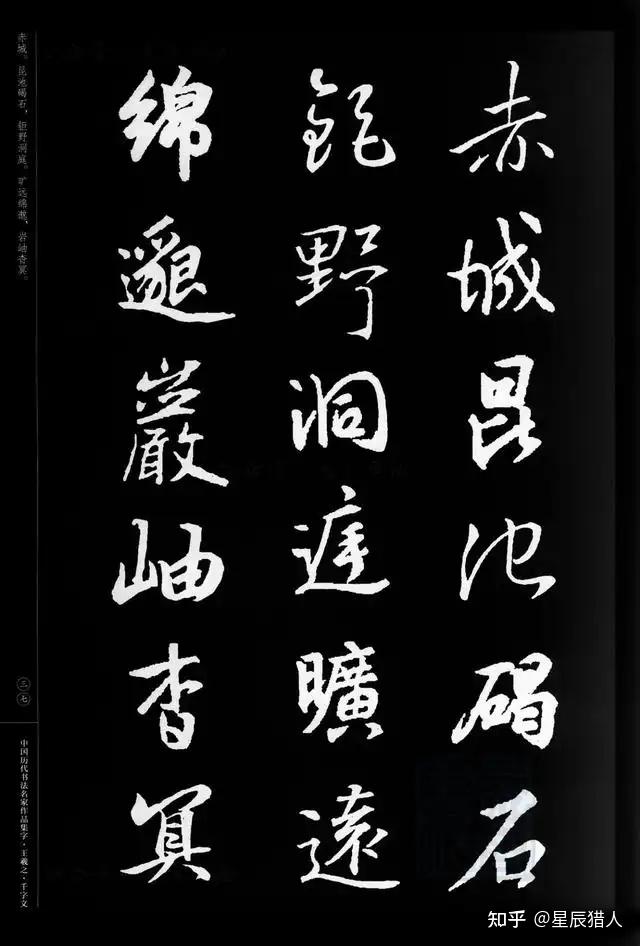 赤城昆池碣石
鉅野洞庭曠遠
綿邈巖岫杳冥
赤城。昆池碣石，钜野洞庭。旷远绵邈，岩岫杳冥。
三七
中国历代书法名家作品集字·王羲之·千字文
知乎 @星辰猎人